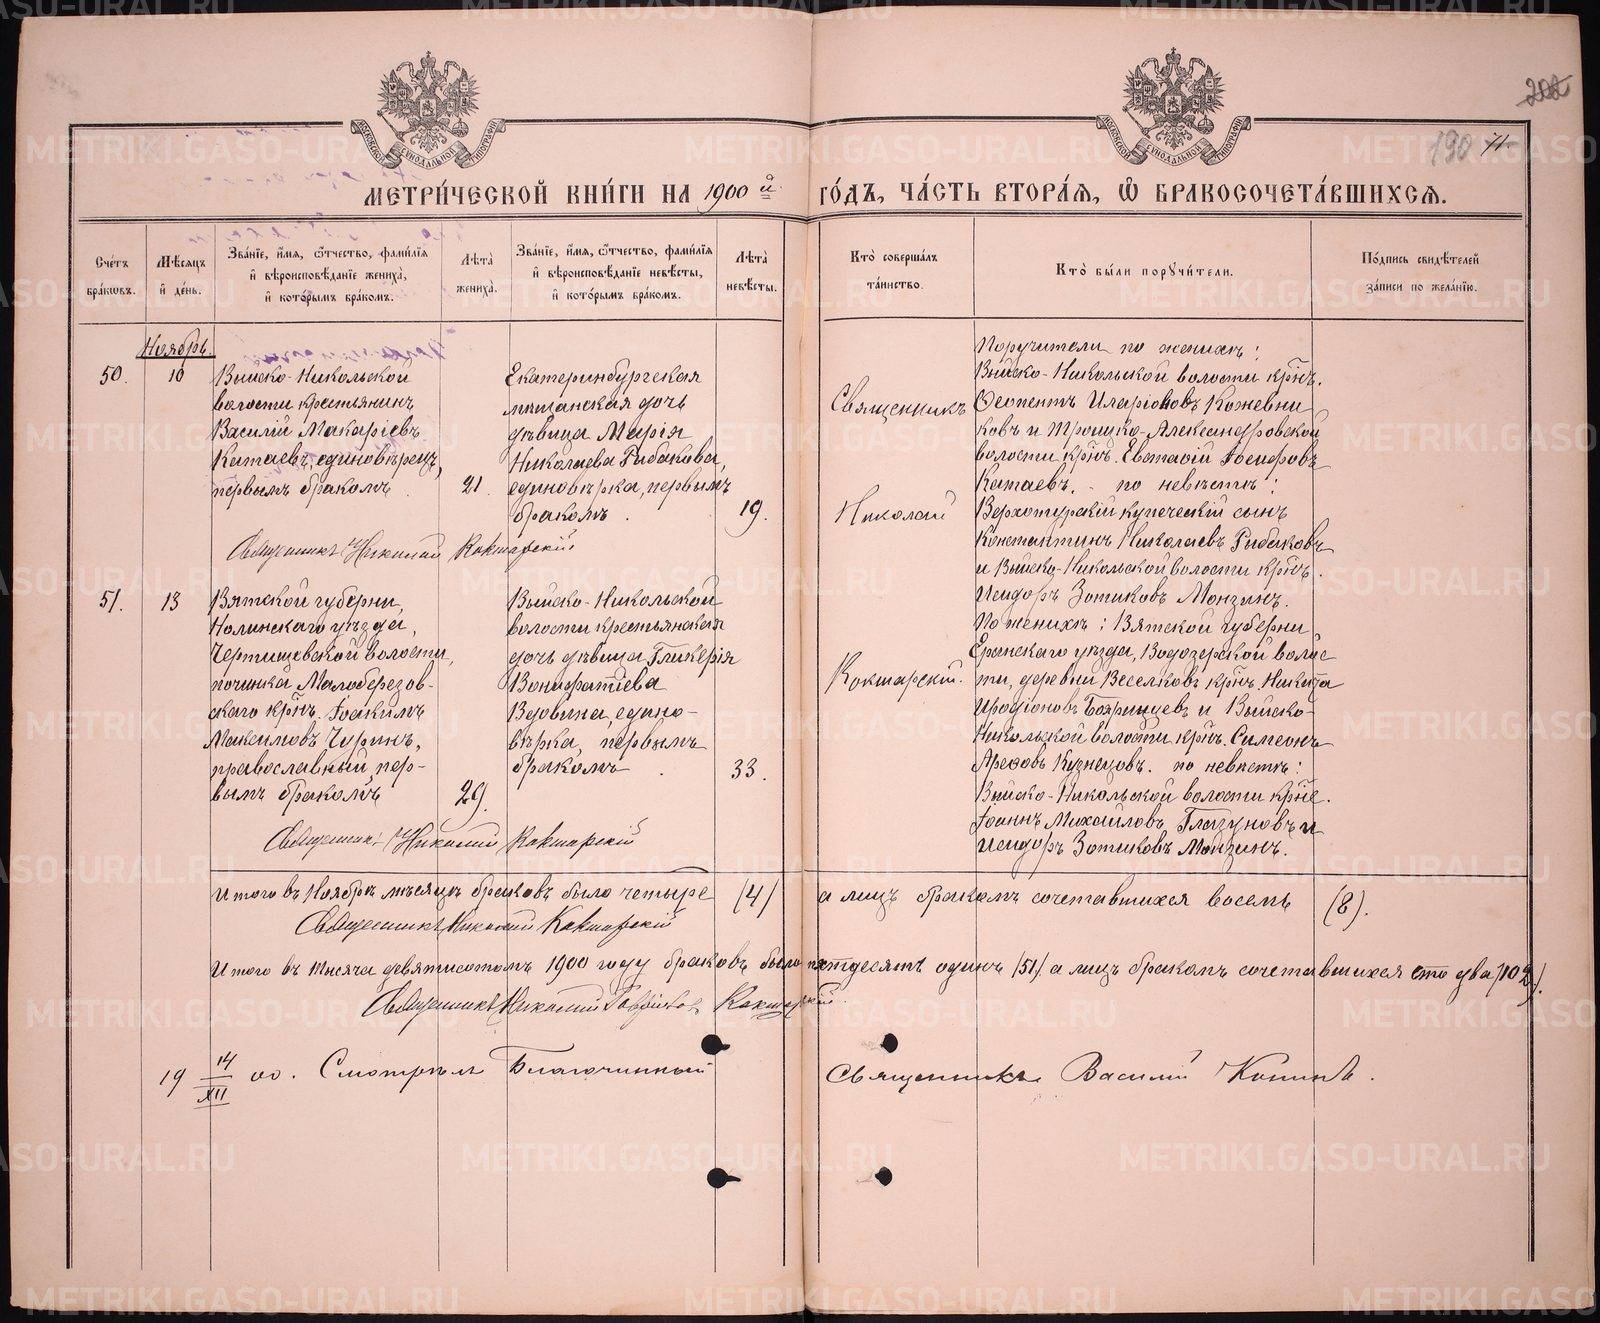 202
190 71
МОСКОВСКОЙ СѴНОДАЛЬНОЙ ТИПОГРАФІИ
МОСКОВСКОЙ СѴНОДАЛЬНОЙ ТИПОГРАФІИ
МЕТРИ́ЧЕСКОЙ КНИ́ГИ НА 1900й ГО́ДЪ, ЧА́СТЬ ВТОРА́Я, Ѽ БРАКОСОЧЕТА́ВШИХСЯ.
Сче́тъ бра́кѡвъ.
Мѣ́сяцъ и҆ де́нь.
Зва́нїе, и҆́мя, ѻ҆́тчество, фами́лїя и҆ вѣроисповѣ́данїе жениха̀, и҆ кото́рымъ бра́комъ.
Лѣта̀ жениха̀.
Зва́нїе, и҆́мя, ѻ҆́тчество, фами́лїя и҆ вѣроисповѣ́данїе невѣ́сты, и҆ кото́рымъ бра́комъ.
Лѣта̀ невѣ́сты.
Кто̀ соверша́лъ та́инство.
Кто̀ бы́ли поручи́тели.
По́дпись свидѣ́телей за́писи по жела́нїю.
Ноябрь
50. 10
Выйско-Никольской
волости крестьянинъ
Василій Макаріевъ
Катаевъ, единовѣрецъ,
первымъ бракомъ.
21.
Екатеринбургская
мѣщанская дочь
дѣвица Марія
Николаева Рыбакова,
единовѣрка, первымъ
бракомъ.
19.
Священникъ
Николай
Кокшарскій.
Поручители по женихѣ:
Выйско-Никольской волости крѣн.
Ѳеопентъ Иларіоновъ Кожевни
ковъ и Троицко-Александровской
волости крѣн. Евстафій Іосифовъ
Катаевъ. - по невѣстѣ:
Верхотурскій купеческій сынъ
Константинъ Николаевъ Рыбаковъ
и Выйско-Никольской волости крѣн.
Исидоръ Зотиковъ Монзинъ.
Священникъ Николай Кокшарскій
51. 13
Вятской губерни,
Нолинскаго уѣзда,
Чертищевской волости,
починка Малоберезов-
скаго крѣн. Іоакимъ
Максимовъ Чуринъ,
православный, пер-
вымъ бракомъ
29.
Выйско-Никольской
волости крестьянская
дочь дѣвица Гликерія
Вонифатіева
Вдовина, едино-
вѣрка, первымъ
бракомъ.
33.
По женихѣ: Вятской губерни
Еранскаго уѣзда, Водозерской волос
ти, деревни Веселковъ крѣн. Никита
Иродіоновъ Бояринцевъ и Выйско-
Никольской волости крѣн. Симеонъ
Кузнецовъ. по невѣстѣ:
Выйско-Никольской волости крѣне.
Іоаннъ Михайловъ Глазуновъ и
Исидоръ Зотиковъ Монзинъ.
Священникъ Николай Кокшарскій
Итого въ Ноябрѣ мѣсяцѣ браковъ было четыре (4) а лицъ бракомъ сочетавшихся восемь (8).
Священникъ Николай Кокшарскій
Итого въ тысяча девятисотомъ 1900 году браковъ было пятьдесятъ одинъ (51) а лицъ бракомъ сочетавшихся сто два (102).
Священникъ Николай Кокшарскій.
19 14/XII 00. Смотрѣлъ Благочинный Священникъ Василій
METRIKI.GASO-URAL.RU